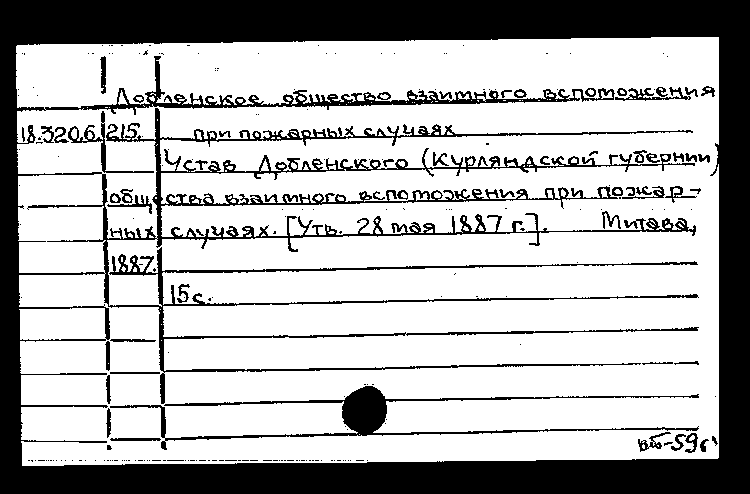 Добленское общество взаимного вспоможения
18.320.6.215. при пожарных случаях
Устав Добленского (Курляндской губернии)
общества взаимного вспоможения при пожар-
ных случаях. [Утв. 28 мая 1887 г.]. Митава,
1887.
15 с.